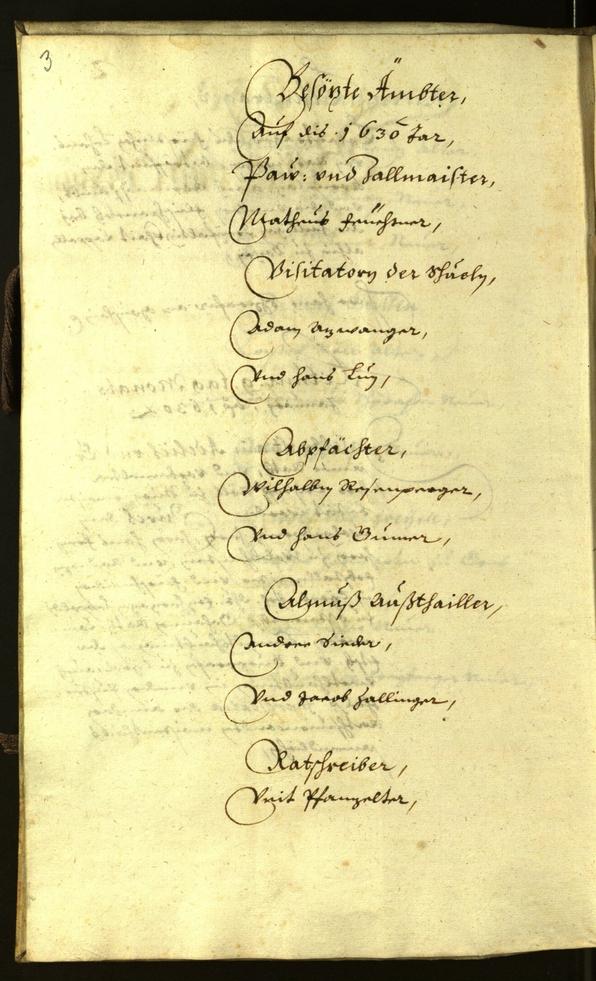 3
Besözte Ämbter,
Auf dis 1630 Jar,
Paw: vnd Zallmaister,
Matheus Feuchtner,
Visitatorn der Schueln,
Adam Anwanger,
Vnd Hans Luz,
Abpfächter,
Wilhalbm Rosenperger,
Vnd Hans Gumer,
Almuß Außthailler,
Andree Rieder,
Vnd Jacob Hallinger,
Ratschreiber,
Veit Pfanzelter,